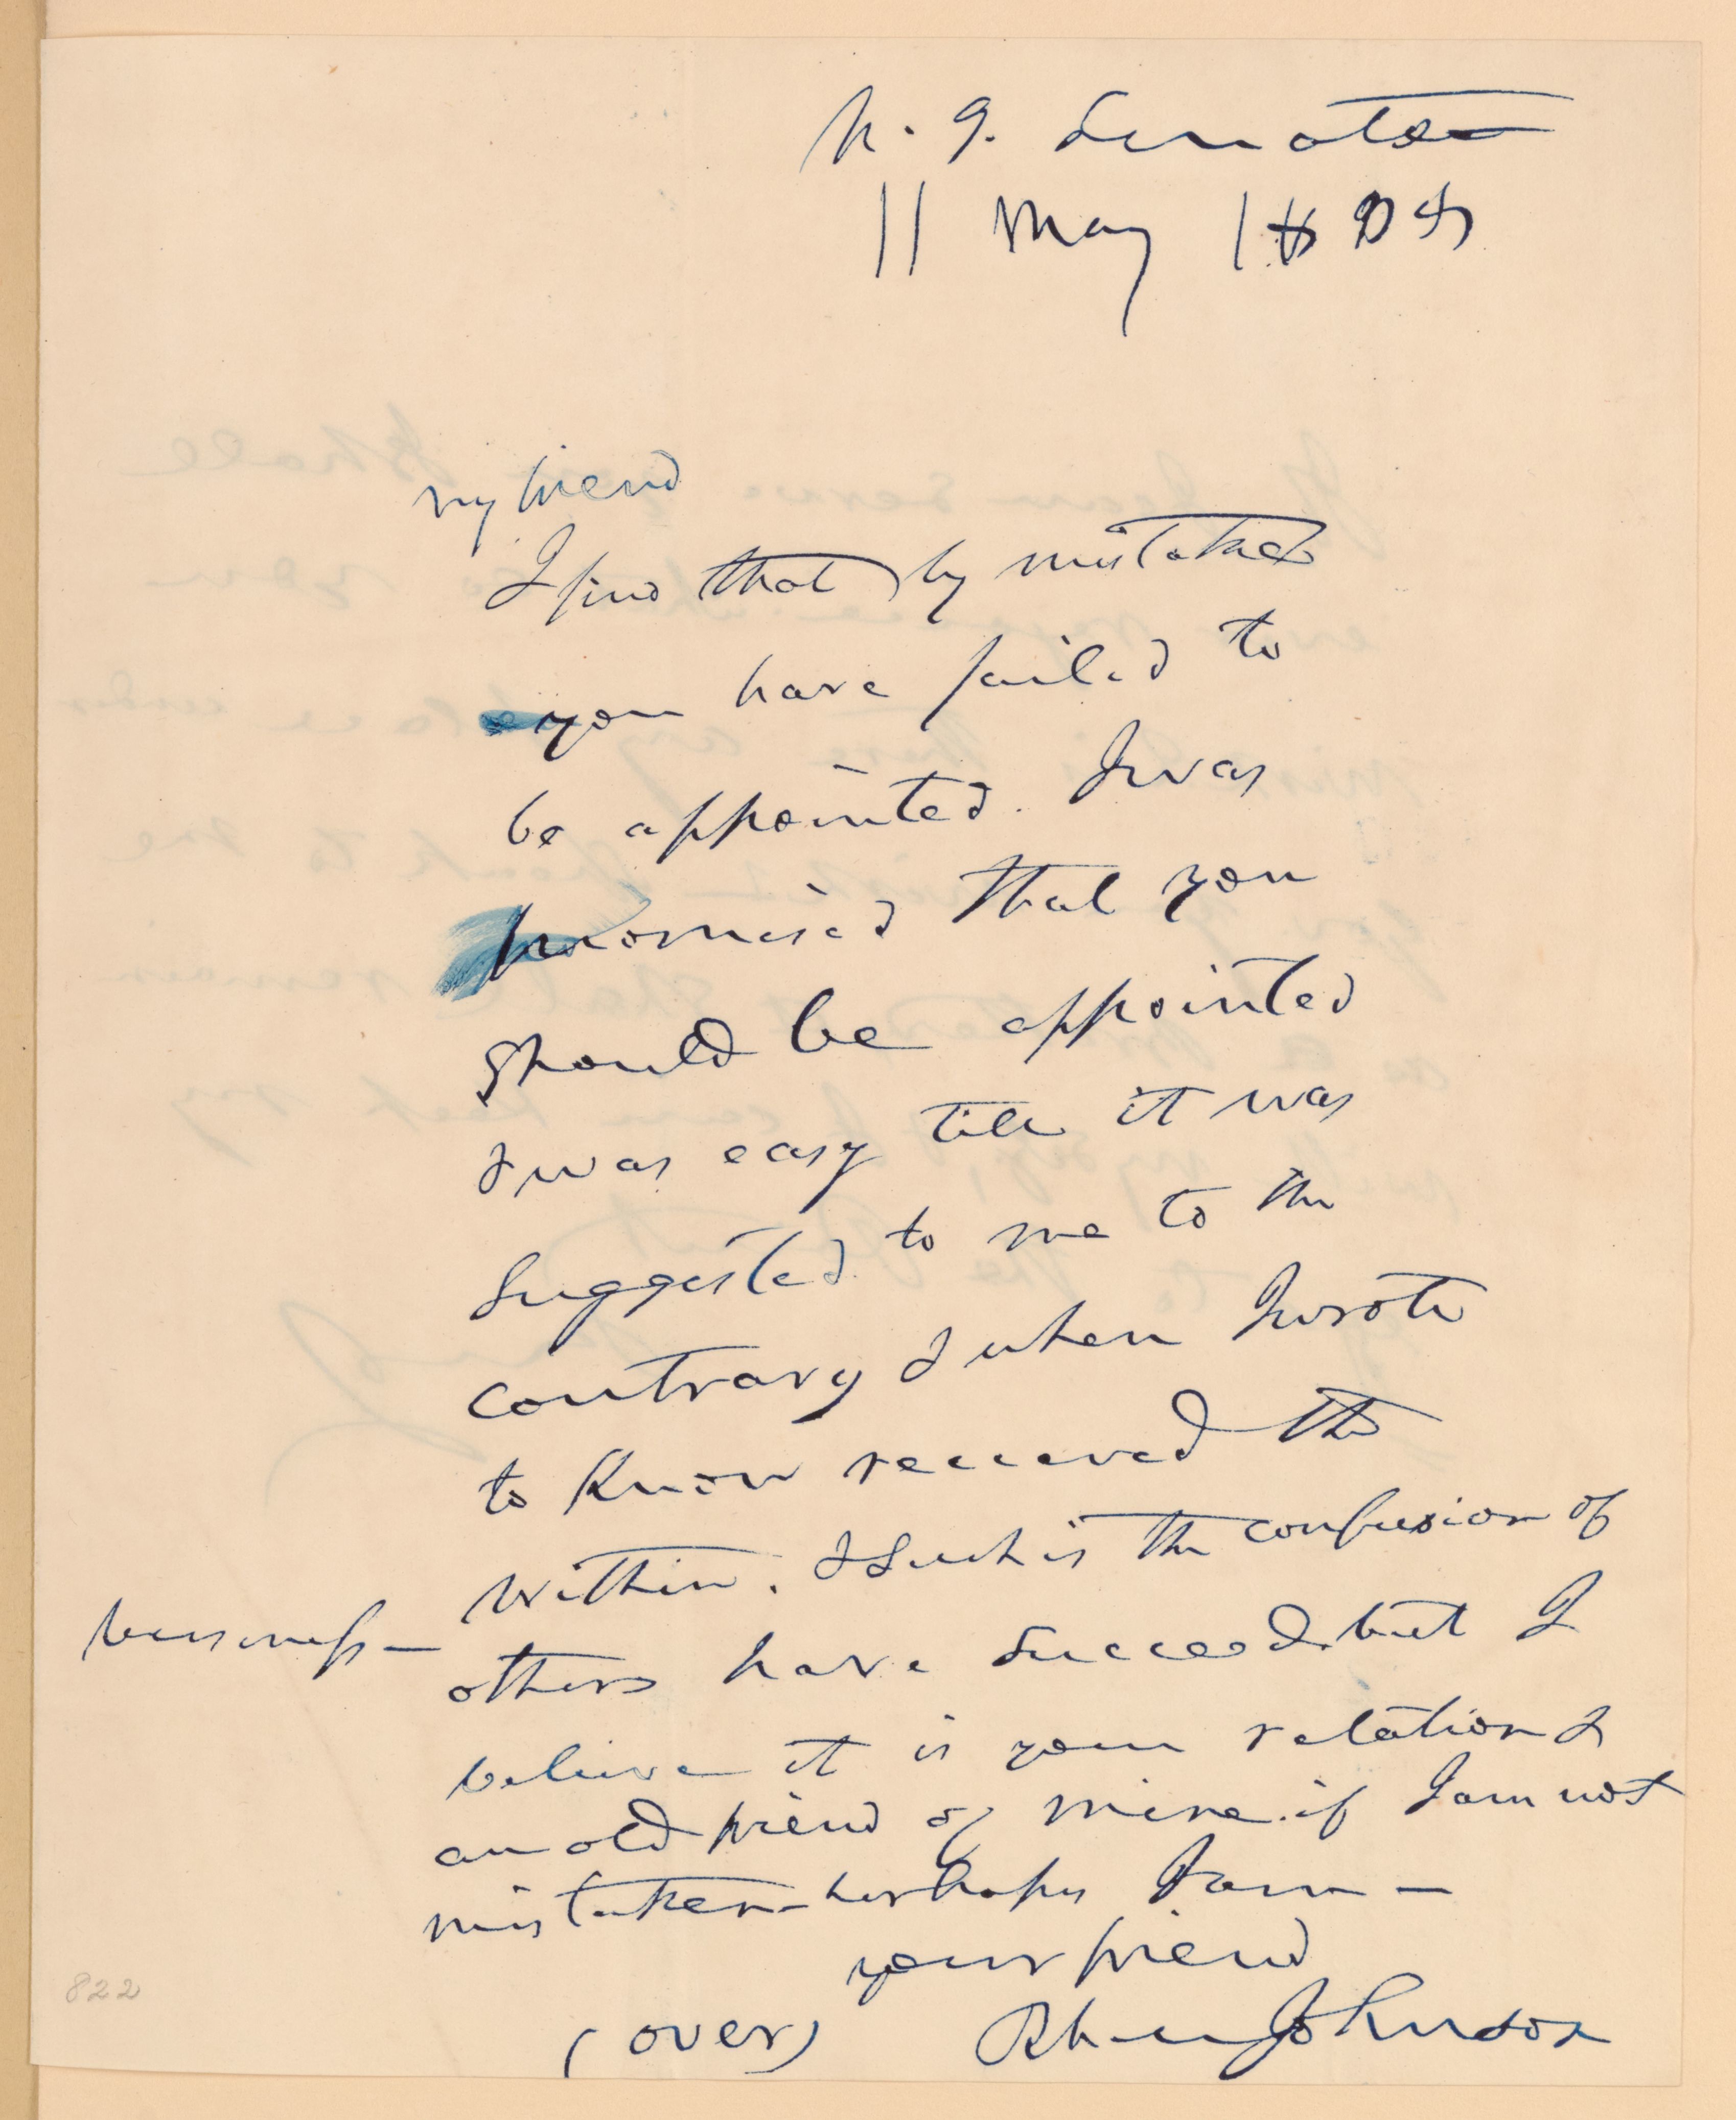 U. S. Senate
11 May 18
my friend
I find that by mistake
you have failed to
be appointed. I was
promised that you
should be appointed
I was easy till it was
suggested to me to the
contrary & when I wrote
to know received the
within. & Such is the confusion of
business—
others have succeed but I
believe it is your relation &
an old friend of mine. if I am not
mistaken—perhaps I am—
your friend
(over) Johnson
822